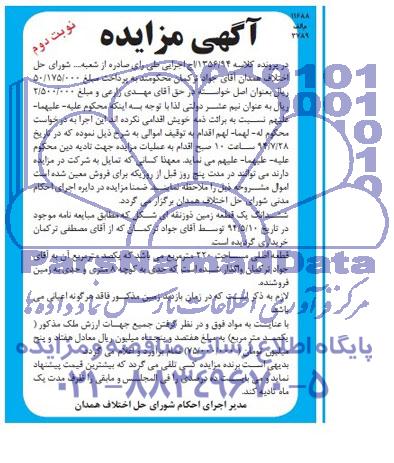 ۱۱۶۸۸
م الف
۳۷۸۹
آگهی مزایده
نوبت دوم
در پرونده کلاسه ۱۳۵۶/۹۴/اج اجرایی طی رای صادره از شعبه... شورای حل
اختلاف همدان آقای جواد ترکمان محکومند به پرداخت مبلغ ۵۰/۱۷۵/۰۰۰
ریال بعنوان اصل خواسته در حق آقای مهدی زارعی و مبلغ ۲/۵۰۰/۰۰۰
ریال به عنوان نیم عشر دولتی لذا با توجه به اینکه محکوم علیه- علیهما-
علیهم نسبت به برائت ذمه خویش اقدامی نکرده اند این اجرا به درخواست
محکوم له- لهما- لهم اقدام به توقیف اموالی به شرح ذیل نموده که در تاریخ
۹۴/۷/۲۸ ساعت ۱۰ صبح اقدام به عملیات مزایده جهت تادیه دین محکوم
علیه- علیهما- علیهم می نماید. معهذا کسانی که تمایل به شرکت در مزایده
دارند می توانند در مدت پنج روز قبل از روزیکه برای فروش معین شده است
اموال مشروحه ذیل را ملاحظه نمایند. ضمنا مزایده در دایره اجرای احکام
مدنی شورای حل اختلاف همدان برگزار می گردد.
ششدانگ یک قطعه زمین ذوزنقه ای شکل که مطابق مبایعه نامه موجود
در تاریخ ۹۴/۵/۱۰ توسط آقای جواد ترکمان که از آقای مصطفی ترکمان
خریداری گردیده است.
قطعه اصلی مساحت ۲۲۰ مترمربع می باشد که یکصد مترمربع آن به آقای
جواد ترکمان واگذار شده است که حدی به کوچه ۸ متری و حدی به زمین
فروشنده.
لازم به ذکر است که در زمان بازدید زمین مذکور فاقد هرگونه اعیانی می
باشد.
با عنایت به مواد فوق و در نظر گرفتن جمیع جهات ارزش ملک مذکور (
یکصد متر مربع) به مبلغ هفتصد و پنجاه میلیون ریال معادل هفتاد و پنج
میلیون تومان برآورد و اعلام می گردد.
بدیهی است برنده مزایده کسی تلقی می گردد که بیشترین قیمت پیشنهاد
نماید و می بایست ده درصدی را فی المجلس و مابقی را ظرف مدت یک
ماه تادیه کند.
مدیر اجرای احکام شورای حل اختلاف همدان
ParsNamadData
مرکز فرآوری اطلاعات پارس نماد داده ها
پایگاه اطلاع رسانی مناقصه و مزایده
۰۲۱-۸۸۳۴۹۶۷۰-۵